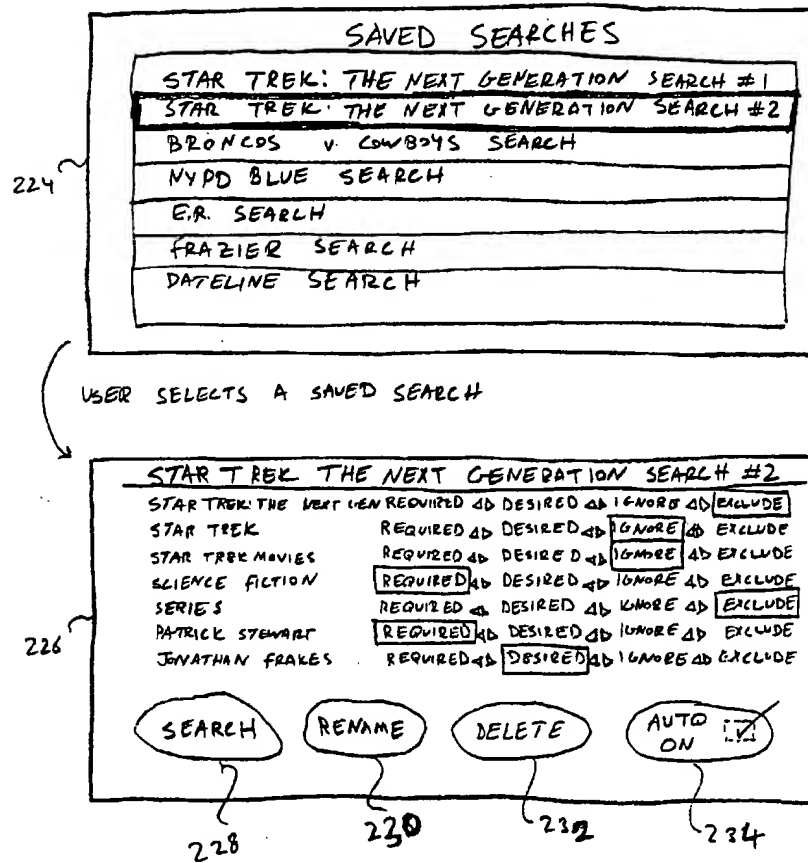 SAVED SEARCHES
STAR TREK: THE NEXT GENERATION SEARCH #1
STAR TREK: THE NEXT GENERATION SEARCH #2
BRONCOS v. COWBOYS SEARCH
NYPD BLUE SEARCH
E.R. SEARCH
FRAZIER SEARCH
DATELINE SEARCH
224
USER SELECTS A SAVED SEARCH
STAR TREK THE NEXT GENERATION SEARCH #2
STAR TREK: THE NEXT GEN REQUIRED DESIRED IGNORE EXCLUDE
STAR TREK REQUIRED DESIRED IGNORE EXCLUDE
STAR TREK MOVIES REQUIRED DESIRED IGNORE EXCLUDE
SCIENCE FICTION REQUIRED DESIRED IGNORE EXCLUDE
SERIES REQUIRED DESIRED IGNORE EXCLUDE
PATRICK STEWART REQUIRED DESIRED IGNORE EXCLUDE
JONATHAN FRAKES REQUIRED DESIRED IGNORE EXCLUDE
226
SEARCH RENAME DELETE AUTO ON
228 230 232 234